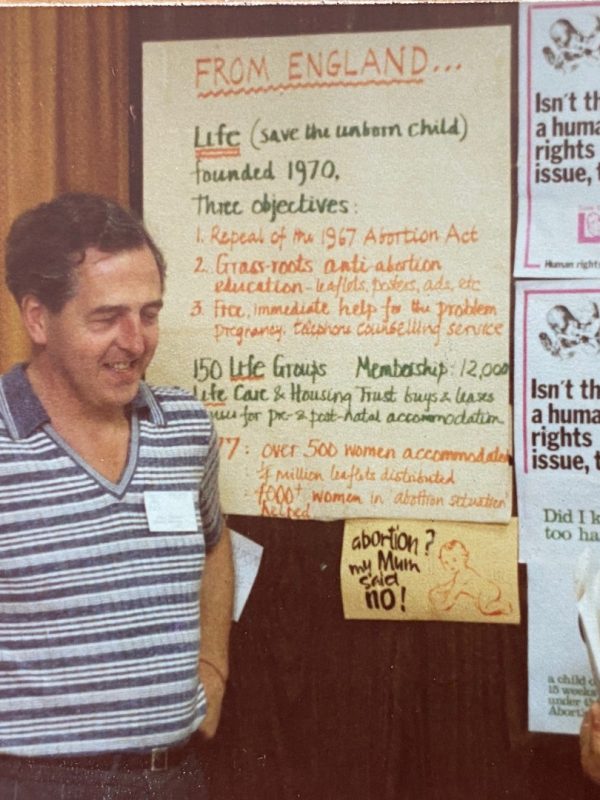 FROM ENGLAND...
Life (save the unborn child)
founded 1970.
Three objectives:
1. Repeal of the 1967 Abortion Act
2. Grass-roots anti-abortion
education - leaflets, posters, ads, etc
3. Free, immediate help for the problem
pregnancy. telephone counselling service
150 Life Groups Membership: 12,000
Life Care & Housing Trust buys & leases
for pre- & post-natal accommodation
77: over 500 women accommodated
million leaflets distributed
women in abortion situation
helped
abortion?
my Mum
said
no!
Isn't th
a huma
rights
issue, t
Human right
Isn't th
a huma
rights
issue, t
Did I k
too ha
a child
15 weeks
under th
Abort